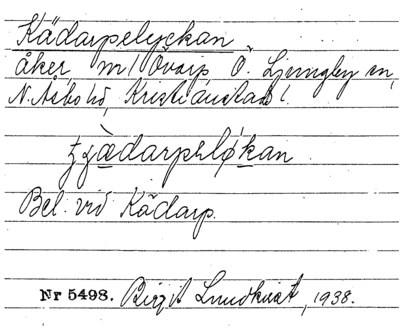 Kädarpelyckan
åker, m/ Övarp, Ö. Ljungby sn,
N. Åsbo hd, Kristianstads l.
ꞩꞩàdarpəlø̍kan
Bel. vid Kädarp.
Nr 5498. Birgit Lundkvist, 1938.